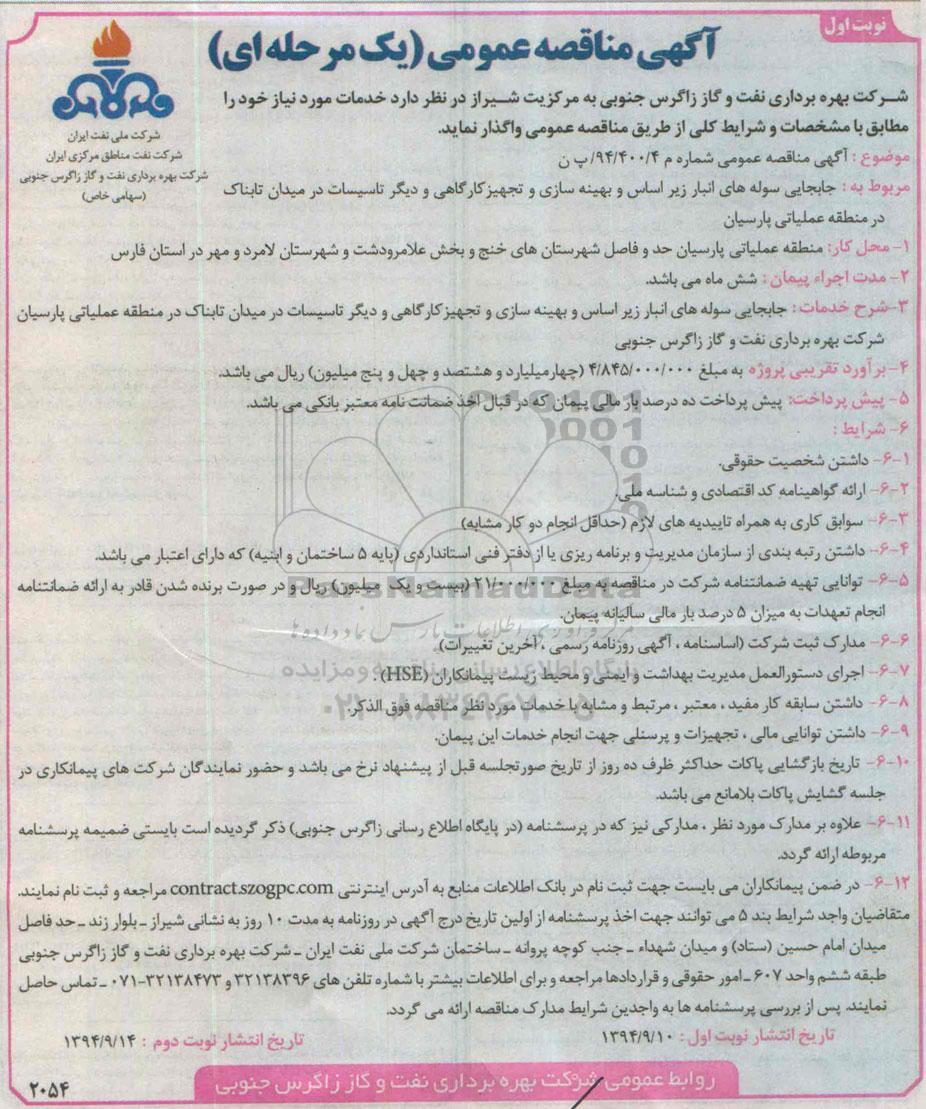 نوبت اول
آگهی مناقصه عمومی (یک مرحله ای)
شرکت ملی نفت ایران
شرکت نفت مناطق مرکزی ایران
شرکت بهره برداری نفت و گاز زاگرس جنوبی
(سهامی خاص)
شرکت بهره برداری نفت و گاز زاگرس جنوبی به مرکزیت شیراز در نظر دارد خدمات مورد نیاز خود را
مطابق با مشخصات و شرایط کلی از طریق مناقصه عمومی واگذار نماید.
موضوع : آگهی مناقصه عمومی شماره م ۹۴/۴۰۰/۴/ پ ن
مربوط به : جابجایی سوله های انبار زیر اساس و بهینه سازی و تجهیزکارگاهی و دیگر تاسیسات در میدان تابناک
در منطقه عملیاتی پارسیان
۱- محل کار: منطقه عملیاتی پارسیان حد و فاصل شهرستان های خنج و بخش علامرودشت و شهرستان لامرد و مهر در استان فارس
۲- مدت اجراء پیمان : شش ماه می باشد.
۳-شرح خدمات : جابجایی سوله های انبار زیر اساس و بهینه سازی و تجهیزکارگاهی و دیگر تاسیسات در میدان تابناک در منطقه عملیاتی پارسیان
شرکت بهره برداری نفت و گاز زاگرس جنوبی
۴-برآورد تقریبی پروژه به مبلغ ۴/۸۴۵/۰۰۰/۰۰۰ (چهارمیلیارد و هشتصد و چهل و پنج میلیون) ریال می باشد.
۵- پیش پرداخت: پیش پرداخت ده درصد بار مالی پیمان که در قبال اخذ ضمانت نامه معتبر بانکی می باشد.
۶- شرایط :
۶-۱- داشتن شخصیت حقوقی.
۶-۲- ارائه گواهینامه کد اقتصادی و شناسه ملی.
۶-۳- سوابق کاری به همراه تاییدیه های لازم (حداقل انجام دو کار مشابه)
۶-۴- داشتن رتبه بندی از سازمان مدیریت و برنامه ریزی یا از دفتر فنی استانداری (پایه ۵ ساختمان و ابنیه) که دارای اعتبار می باشد.
۶-۵- توانایی تهیه ضمانتنامه شرکت در مناقصه به مبلغ ۲۱/۰۰۰/۰۰۰ (بیست و یک میلیون) ریال و در صورت برنده شدن قادر به ارائه ضمانتنامه
انجام تعهدات به میزان ۵ درصد بار مالی سالیانه پیمان.
۶-۶- مدارک ثبت شرکت (اساسنامه ، آگهی روزنامه رسمی ، آخرین تغییرات)
۶-۷- اجرای دستورالعمل مدیریت بهداشت و ایمنی و محیط زیست پیمانکاران (HSE) .
۶-۸- داشتن سابقه کار مفید ، معتبر ، مرتبط و مشابه با خدمات مورد نظر مناقصه فوق الذکر.
۶-۹- داشتن توانایی مالی ، تجهیزات و پرسنلی جهت انجام خدمات این پیمان.
۶-۱۰- تاریخ بازگشایی پاکات حداکثر ظرف ده روز از تاریخ صورتجلسه قبل از پیشنهاد نرخ می باشد و حضور نمایندگان شرکت های پیمانکاری در
جلسه گشایش پاکات بلامانع می باشد.
۶-۱۱- علاوه بر مدارک مورد نظر ، مدارکی نیز که در پرسشنامه (در پایگاه اطلاع رسانی زاگرس جنوبی) ذکر گردیده است بایستی ضمیمه پرسشنامه
مربوطه ارائه گردد.
۶-۱۲- در ضمن پیمانکاران می بایست جهت ثبت نام در بانک اطلاعات منابع به آدرس اینترنتی contract.szogpc.com مراجعه و ثبت نام نمایند.
متقاضیان واجد شرایط بند ۵ می توانند جهت اخذ پرسشنامه از اولین تاریخ درج آگهی در روزنامه به مدت ۱۰ روز به نشانی شیراز ـ بلوار زند ـ حد فاصل
میدان امام حسین (ستاد) و میدان شهداء ـ جنب کوچه پروانه ـ ساختمان شرکت ملی نفت ایران ـ شرکت بهره برداری نفت و گاز زاگرس جنوبی
طبقه ششم واحد ۶۰۷ ـ امور حقوقی و قراردادها مراجعه و برای اطلاعات بیشتر با شماره تلفن های ۳۲۱۳۸۳۹۶ و ۳۲۱۳۸۴۷۳-۰۷۱ ـ تماس حاصل
نمایند. پس از بررسی پرسشنامه ها به واجدین شرایط مدارک مناقصه ارائه می گردد.
تاریخ انتشار نوبت اول : ۱۳۹۴/۹/۱۰
تاریخ انتشار نوبت دوم : ۱۳۹۴/۹/۱۴
روابط عمومی شرکت بهره برداری نفت و گاز زاگرس جنوبی
۲۰۵۴
ParsNamadData
پایگاه اطلاع رسانی مناقصه و مزایده
۰۲۱-۸۸۳۴۹۶۷۰-۵